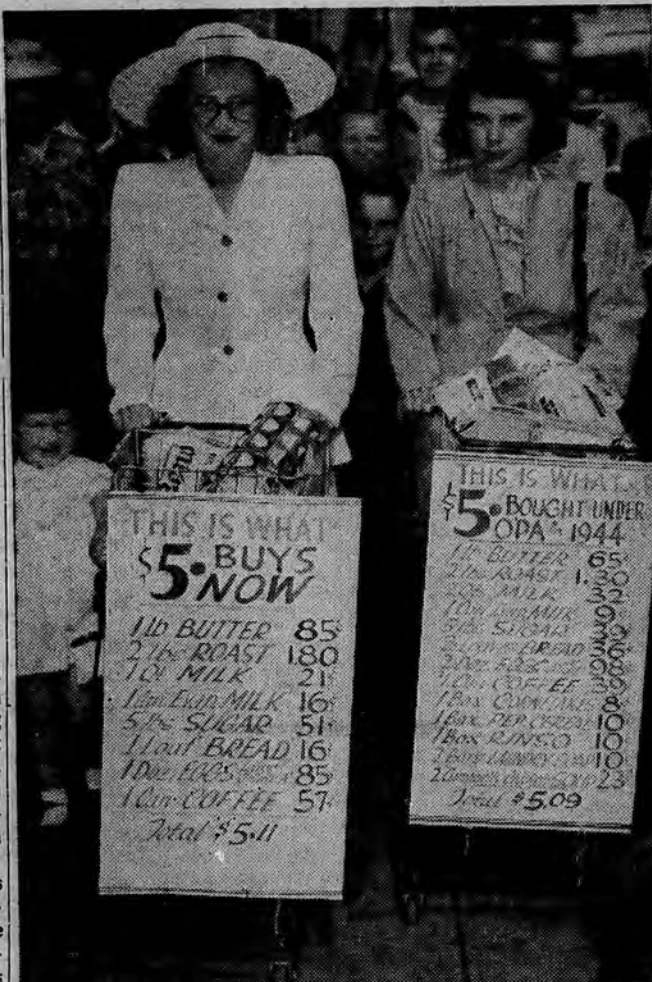 THIS IS WHAT
$5. BUYS
NOW
1 lb BUTTER 85¢
2 lbs ROAST 1.80
1 Qt MILK 21¢
1 Can Evap MILK 16¢
5 lbs SUGAR 51¢
1 Loaf BREAD 16¢
1 Doz. EGGS 85¢
1 Can COFFEE 57¢
Total $5.11
THIS IS WHAT
$5. BOUGHT UNDER
OPA 1944
1 lb BUTTER 65¢
2 lbs ROAST 1.30
MILK 32
1 Can Evap MILK 9
5 lbs SUGAR
BREAD
2 Doz. EGGS
1 Can COFFEE
1 Box CORNFLAKES 8
1 Box CEREAL 10
1 Box RINSO 10
10
2 SOUP 23¢
Total $5.09